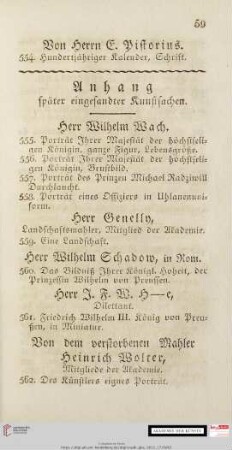 59
Von Herrn E. Pistorius.
554. Hundertjähriger Kalender, Schrift.
Anhang
später eingesandter Kunstsachen.
Herr Wilhelm Wach.
555. Porträt Ihrer Majestät der höchstseli-
gen Königin, ganze Figur, Lebensgröße.
556. Porträt Ihrer Majestät der höchstseli-
gen Königin, Brustbild.
557. Porträt des Prinzen Michael Radziwill
Durchlaucht.
558. Porträt eines Offiziers in Uhlanenuni-
form.
Herr Genelly,
Landschaftsmahler, Mitglied der Akademie.
559. Eine Landschaft.
Herr Wilhelm Schadow, in Rom.
560. Das Bildniß Ihrer Königl. Hoheit, der
Prinzessin Wilhelm von Preussen.
Herr J. F. W. H—e,
Dilettant.
561. Friedrich Wilhelm III. König von Preu-
ßen, in Miniatur.
Von dem verstorbenen Mahler
Heinrich Wolter,
Mitgliede der Akademie.
562. Des Künstlers eignes Porträt.